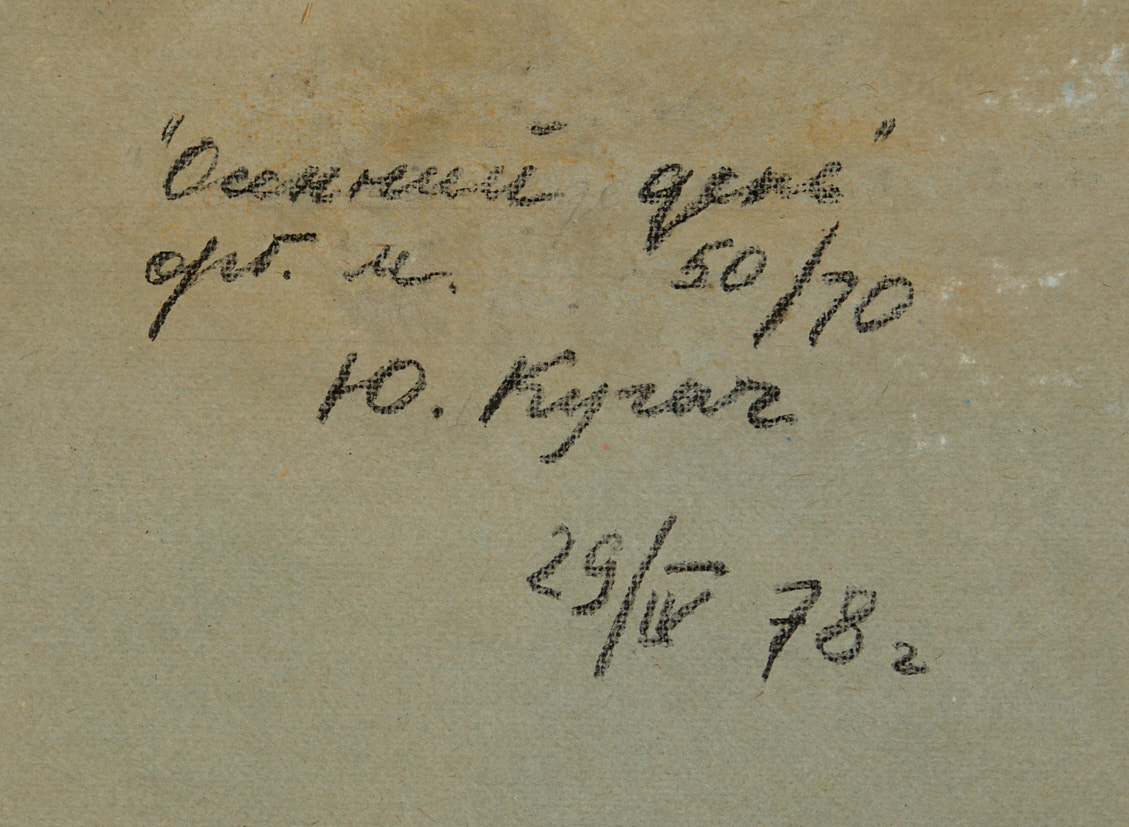 "Осенний день"
орг. м. 50/70
Ю. Кугач
29/IV 78 г